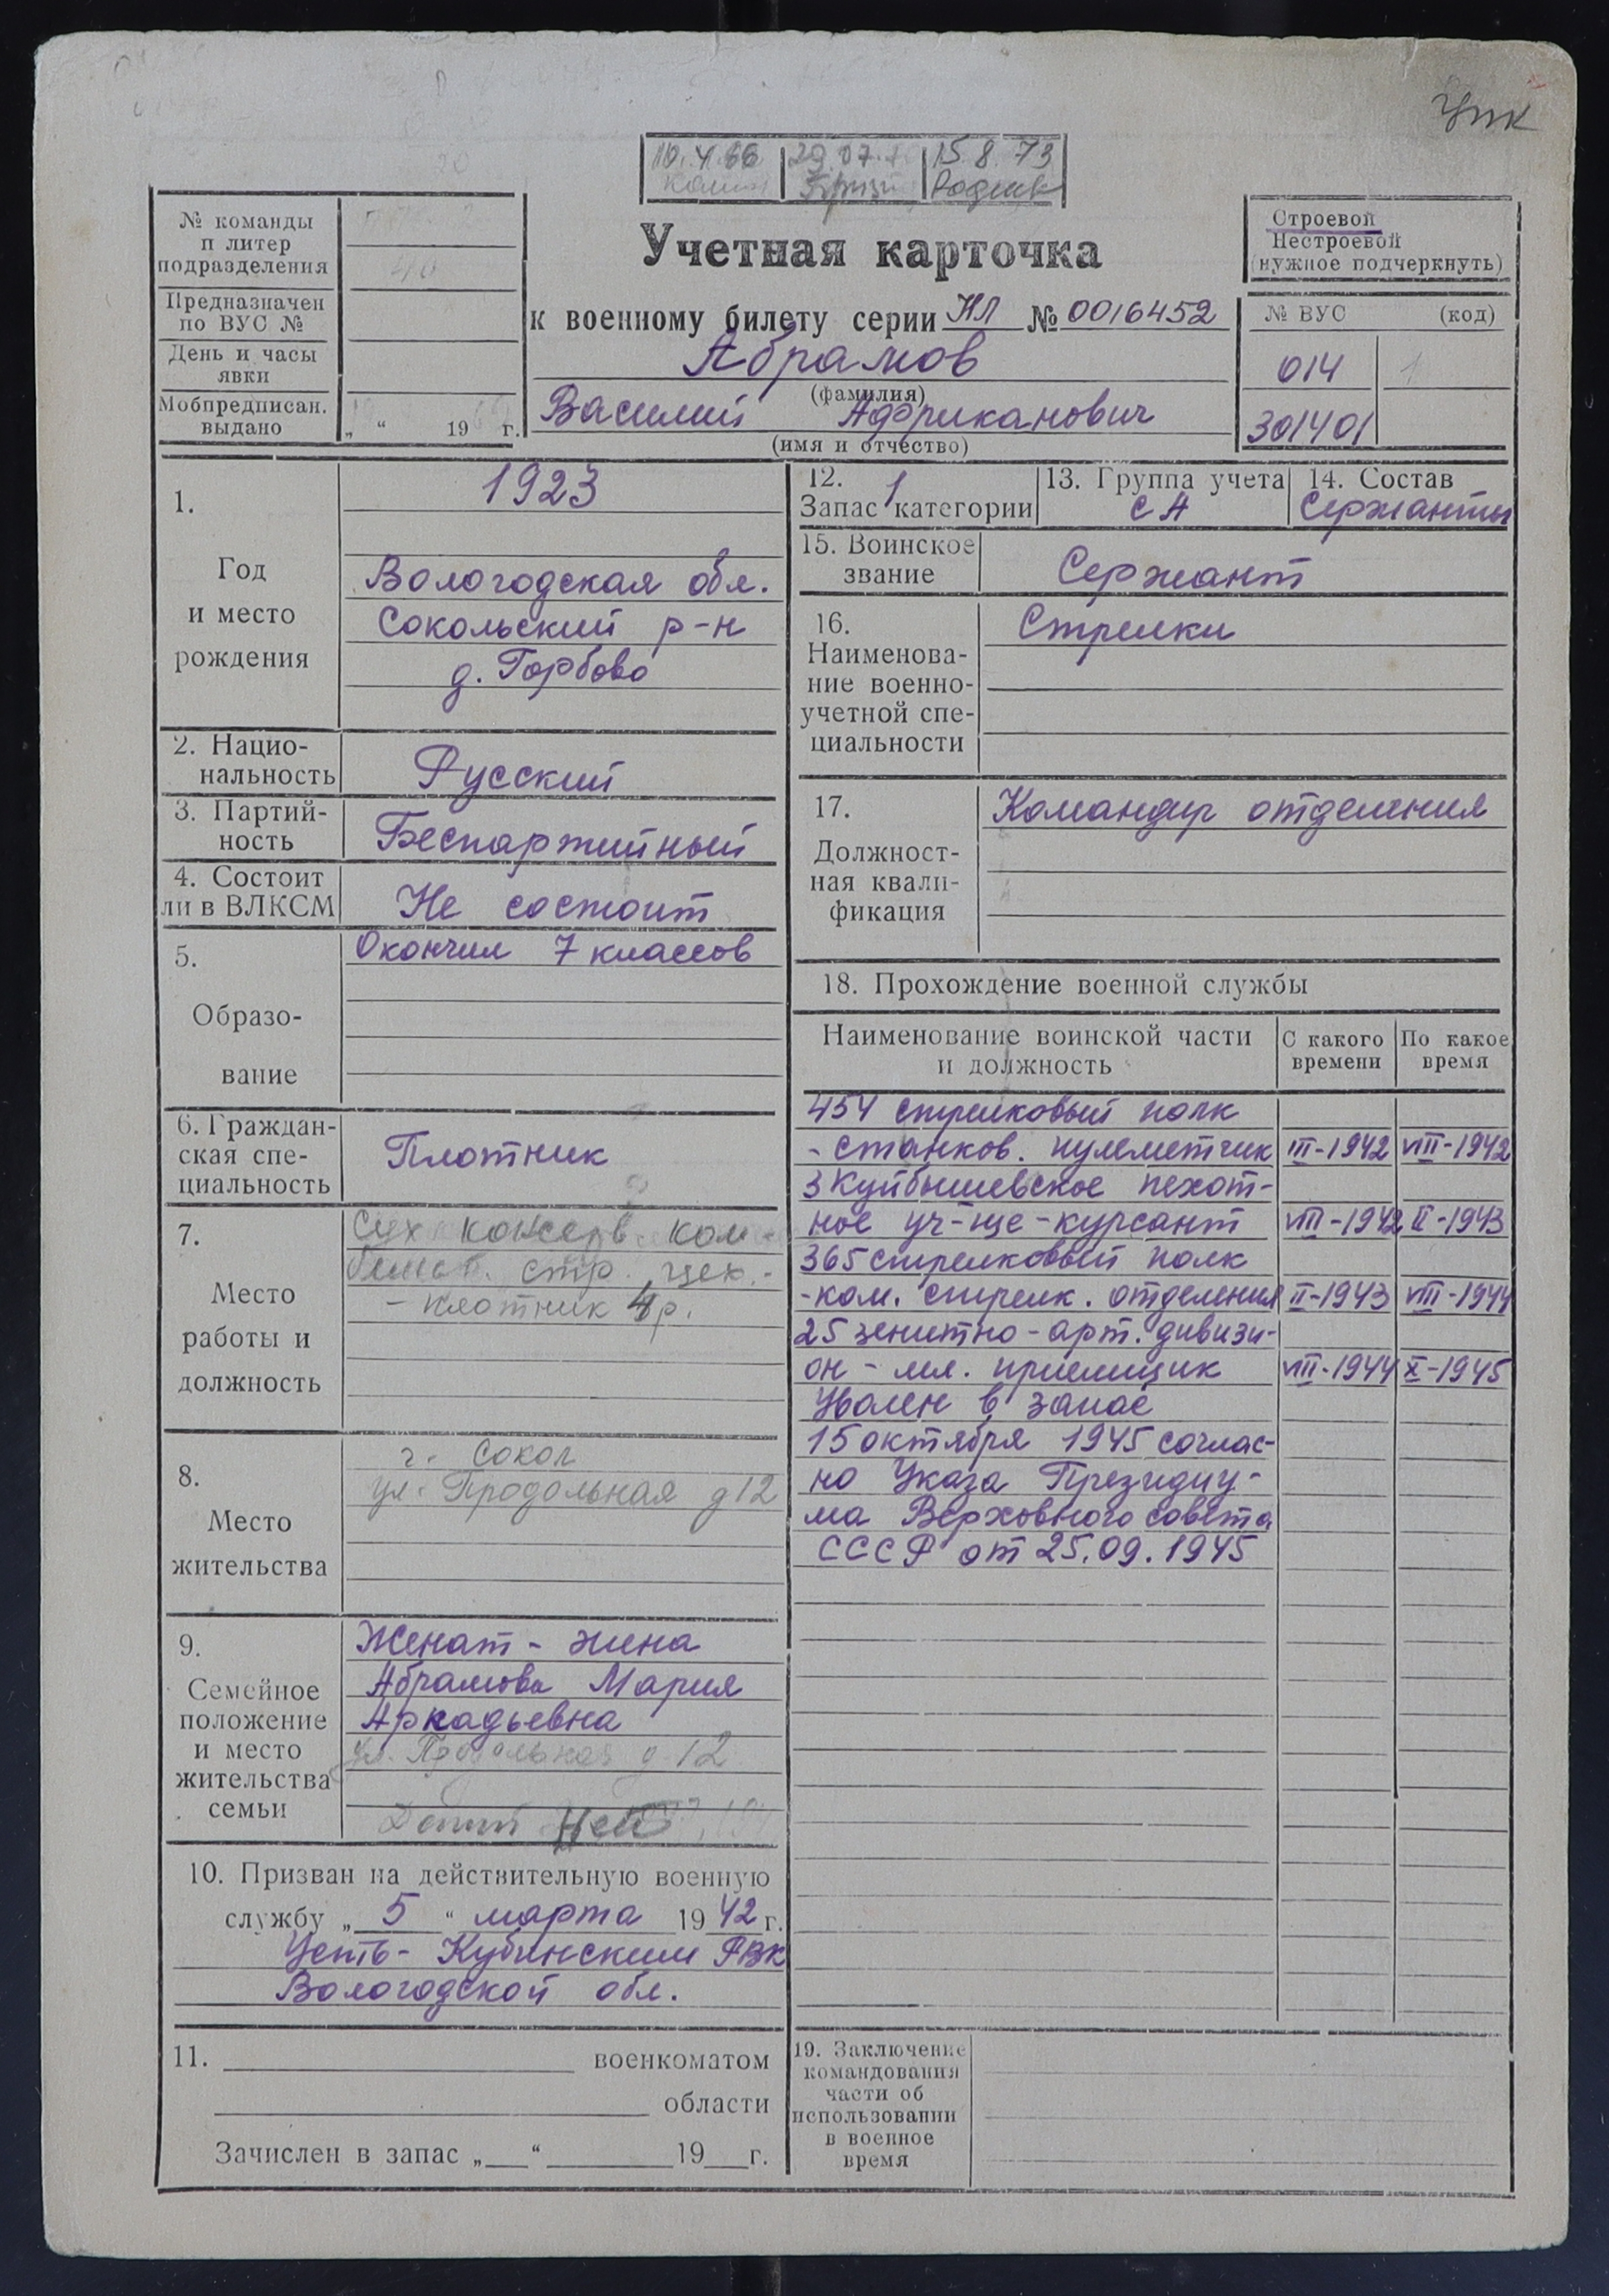 УПК
10.4.66 29.07. 15.8.73
№ команды
п литер
подразделения
Предназначен
по ВУС №
День и часы
явки
Мобпредписан.
выдано
„ “ 19 г.
Учетная карточка
к военному билету серии НЛ № 0016452
Абрамов
(фамилия)
Василий Африканович
(имя и отчество)
Строевой
Нестроевой
(нужное подчеркнуть)
№ ВУС (код)
014 1
301401
1.
Год
и место
рождения
1923
Вологодская обл.
Сокольский р-н
д. Горбово
2. Нацио-
нальность
Русский
3. Партий-
ность
Беспартийный
4. Состоит
ли в ВЛКСМ
Не состоит
5.
Образо-
вание
Окончил 7 классов
6. Граждан-
ская спе-
циальность
Плотник
7.
Место
работы и
должность
Сух консерв ком-
бинат. стр. цех.-
- плотник 4 р.
8.
Место
жительства
г. Сокол
ул. Продольная д 12
9.
Семейное
положение
и место
жительства
семьи
Женат - жена
Абрамова Мария
Аркадьевна
ул. Продольная д 12
Детей нет
10. Призван на действительную военную
службу „ 5 “ марта 19 42 г.
Усть-Кубинским РВК
Вологодской обл.
11. военкоматом
области
Зачислен в запас „ “ 19 г.
12.
Запас 1 категории
13. Группа учета
СА
14. Состав
Сержанты
15. Воинское
звание
Сержант
16.
Наименова-
ние военно-
учетной спе-
циальности
Стрелки
17.
Должност-
ная квали-
фикация
Командир отделения
18. Прохождение военной службы
Наименование воинской части
и должность
С какого
времени
По какое
время
454 стрелковый полк
- станков. пулеметчик III-1942 VIII-1942
3 Куйбышевское пехот-
ное уч-ще - курсант VIII-1942 II-1943
365 стрелковый полк
-ком. стрелк. отделения II-1943 VIII-1944
25 зенитно-арт. дивизи-
он - мл. приемщик VIII-1944 X-1945
Уволен в запас
15 октября 1945 соглас-
но Указа Президиу-
ма Верховного Совета
СССР от 25.09.1945
19. Заключение
командования
части об
использовании
в военное
время